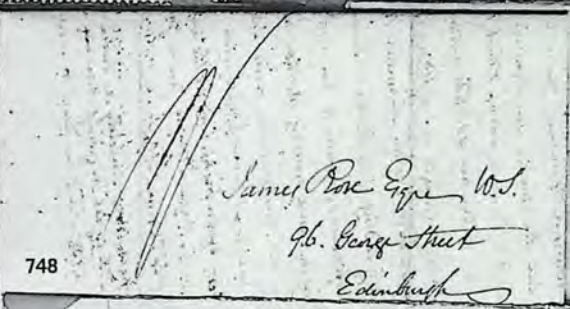 James Rose Esqre W.S.
96. George Street
Edinburgh
748